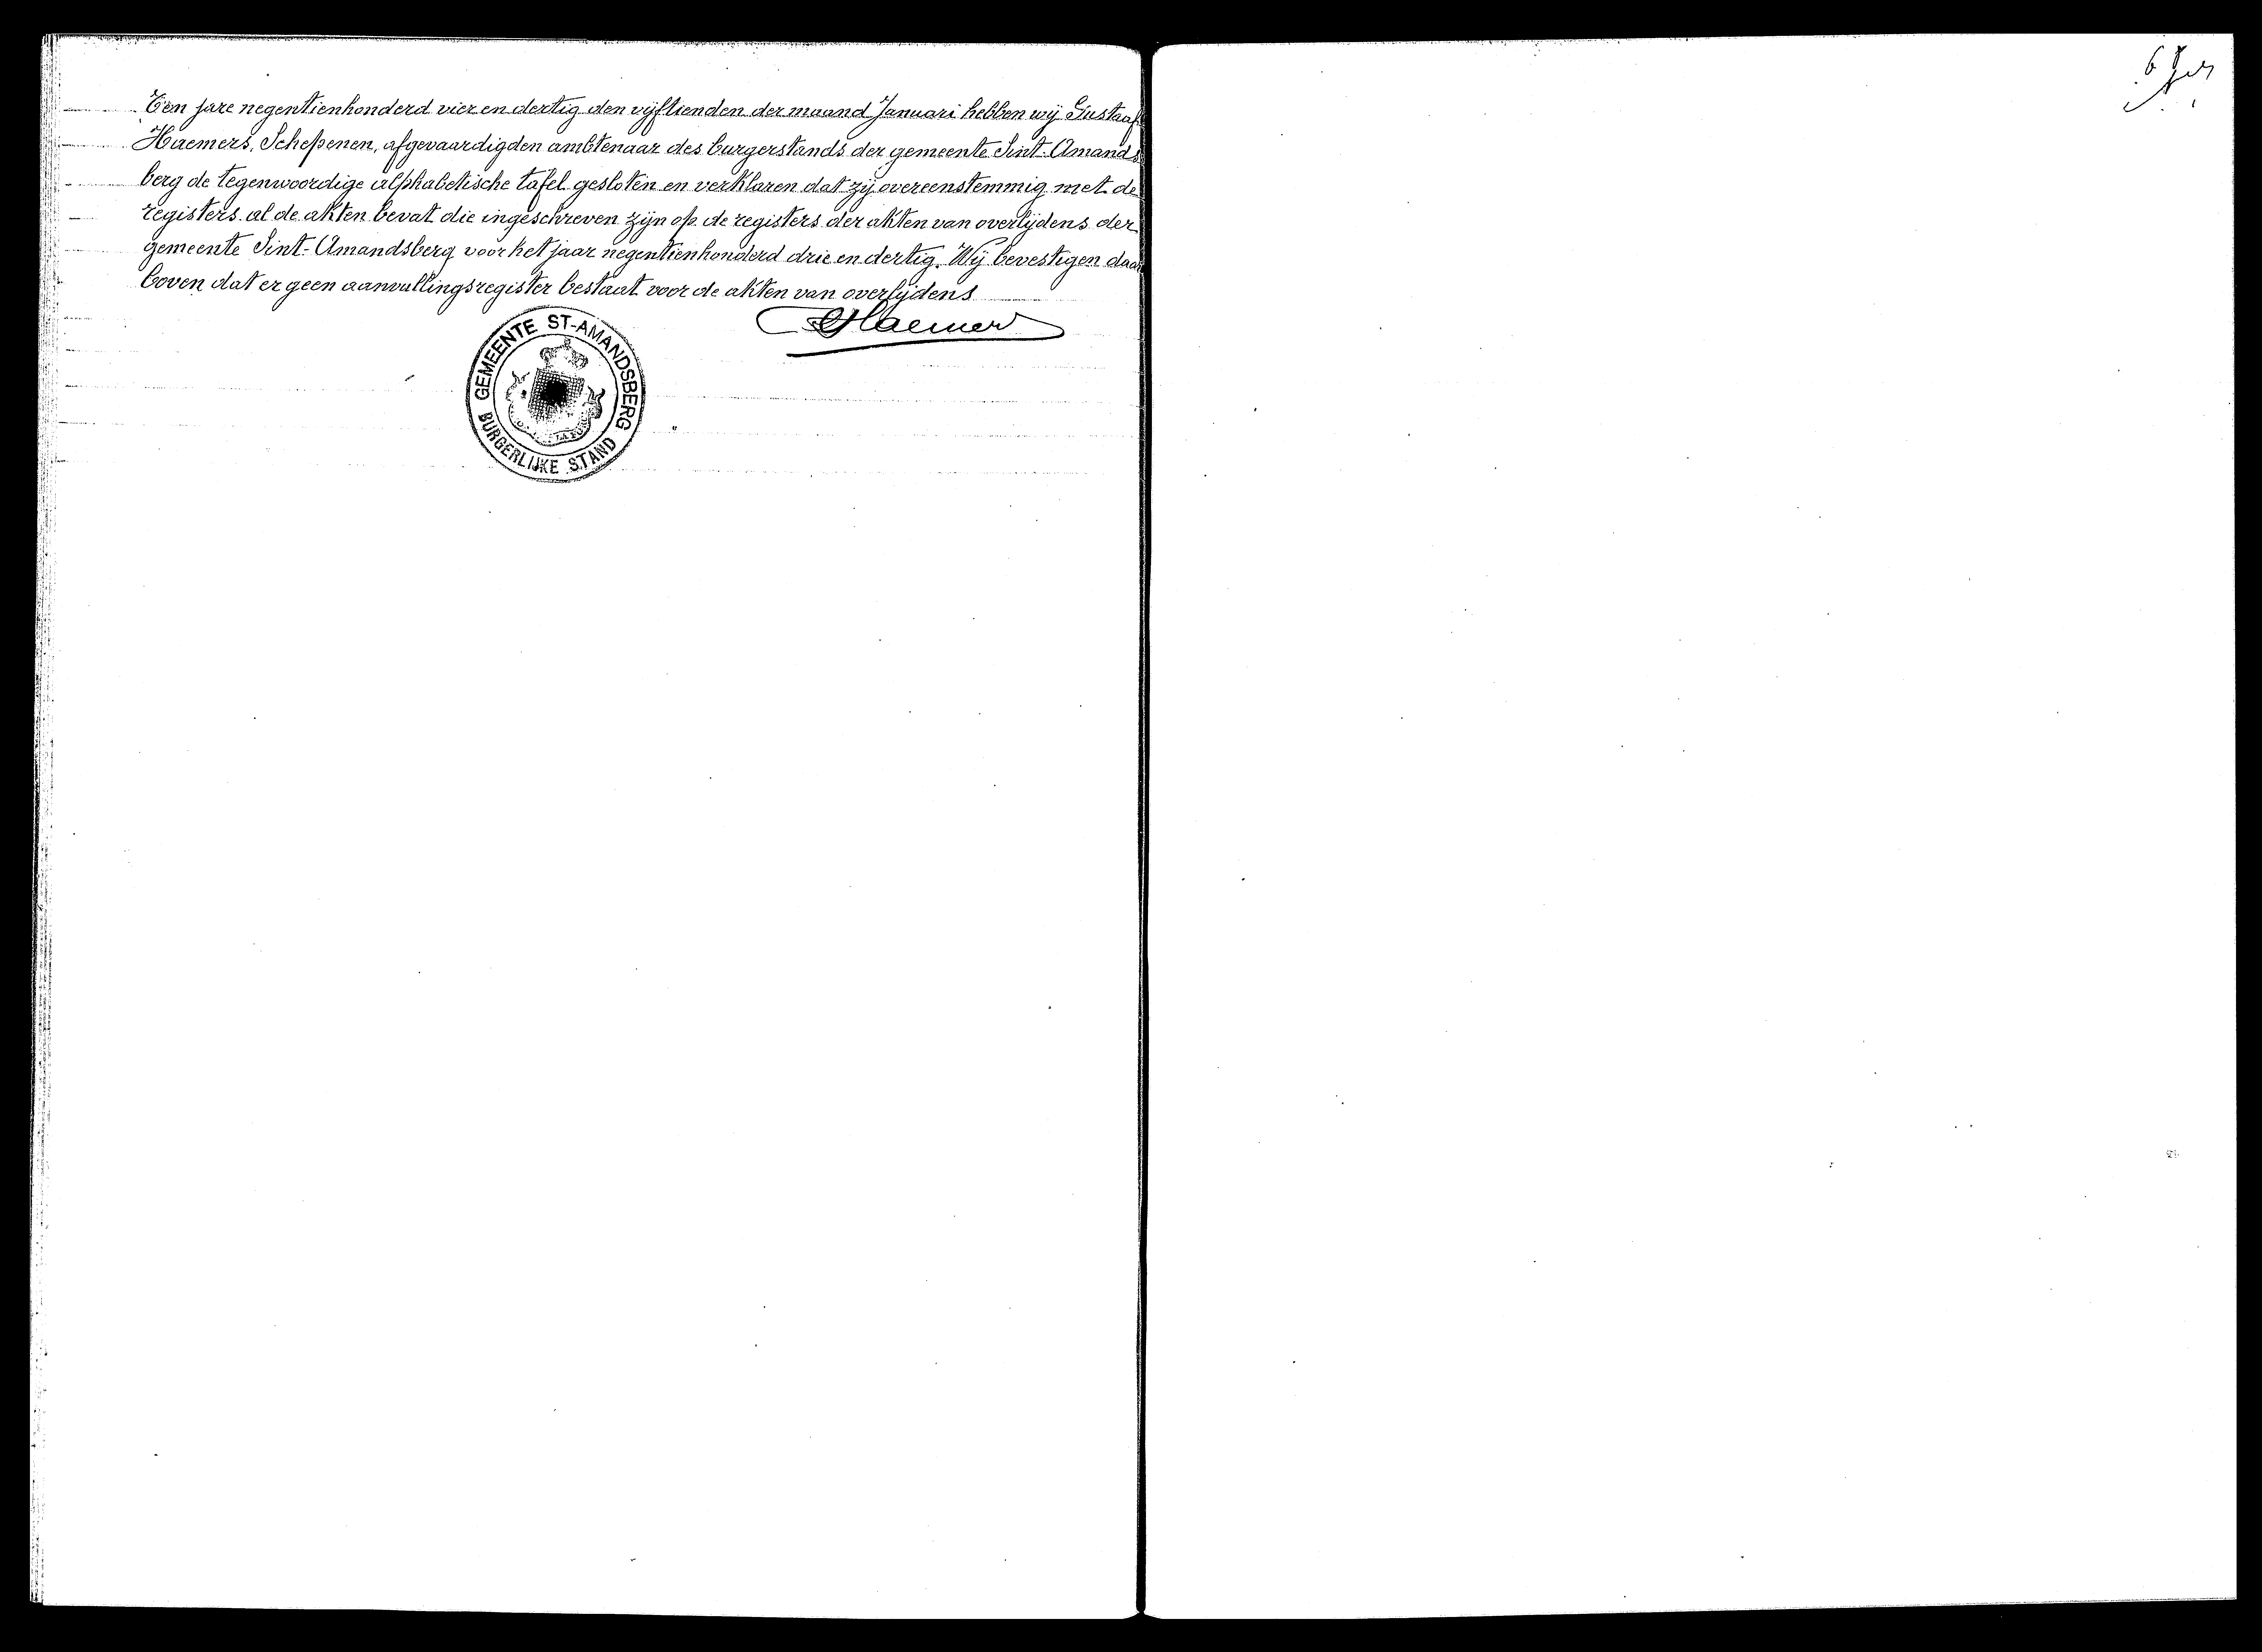 Ten jare negentienhonderd vier en dertig den vijftienden der maand Januari hebben wij Gustaaf
Haemers, Schepenen, afgevaardigden ambtenaar des burgerstands der gemeente Sint-Amands
berg de tegenwoordige alphabetische tafel gesloten en verklaren dat zij overeenstemmig met de
registers al de akten bevat die ingeschreven zijn op de registers der akten van overlijdens der
gemeente Sint-Amandsberg voor het jaar negentienhonderd drie en dertig. Wij bevestigen daar
boven dat er geen aanvullingsregister bestaat voor de akten van overlijdens
GHaemers
GEMEENTE ST-AMANDSBERG
BURGERLIJKE STAND
6